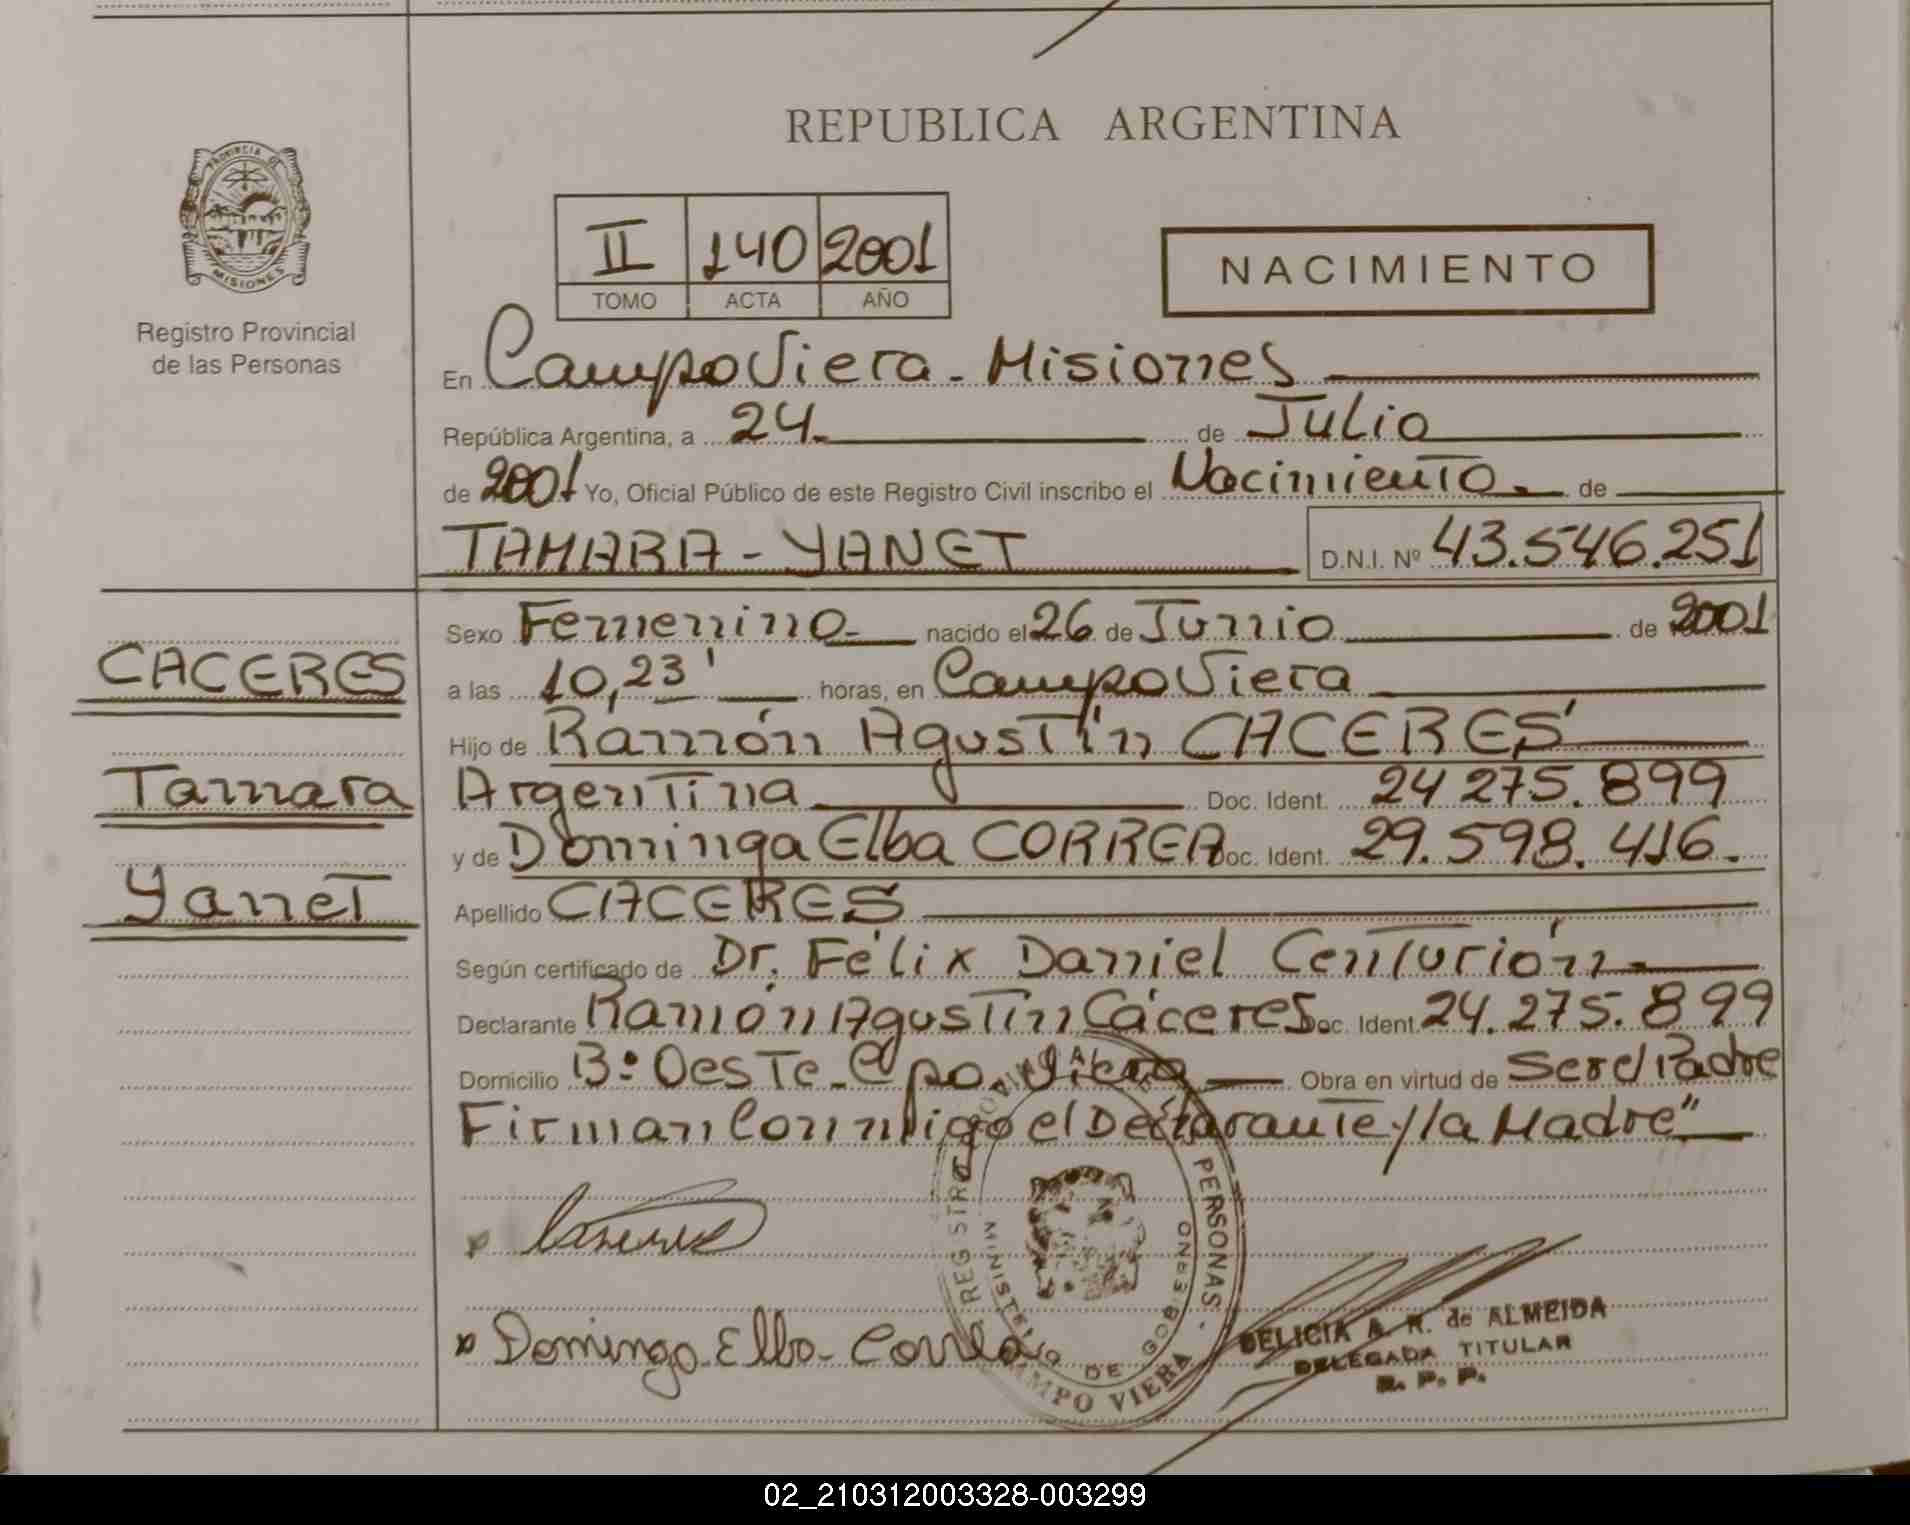 REPUBLICA ARGENTINA
PROVINCIA DE
MISIONES
Registro Provincial
de las Personas
II 140 2001
TOMO ACTA AÑO
NACIMIENTO
En Campo Viera - Misiones
República Argentina, a 24 de Julio
de 2001 Yo, Oficial Público de este Registro Civil inscribo el Nacimiento de
TAMARA - YANET D.N.I. Nº 43.546.251
CACERES
Tamara
Yanet
Sexo Femenino nacido el 26 de Junio de 2001
a las 10,23' horas, en Campo Viera
Hijo de Ramón Agustín CACERES
Argentina Doc. Ident. 24 275.899
y de Dominga Elba CORREA Doc. Ident. 29.598.416.
Apellido CACERES
Según certificado de Dr. Félix Daniel Centurión
Declarante Ramón Agustín Cáceres Doc. Ident. 24.275.899
Domicilio Bº Oeste - Cpo. Viera Obra en virtud de Ser el Padre
Firman Conmigo el Declarante y la Madre"
x Dominga Elba Correa
REGISTRO PROVINCIAL DE PERSONAS - CAMPO VIERA
MINISTERIO DE GOBIERNO
DELICIA A. R. de ALMEIDA
DELEGADA TITULAR
R. P. P.
02_210312003328-003299